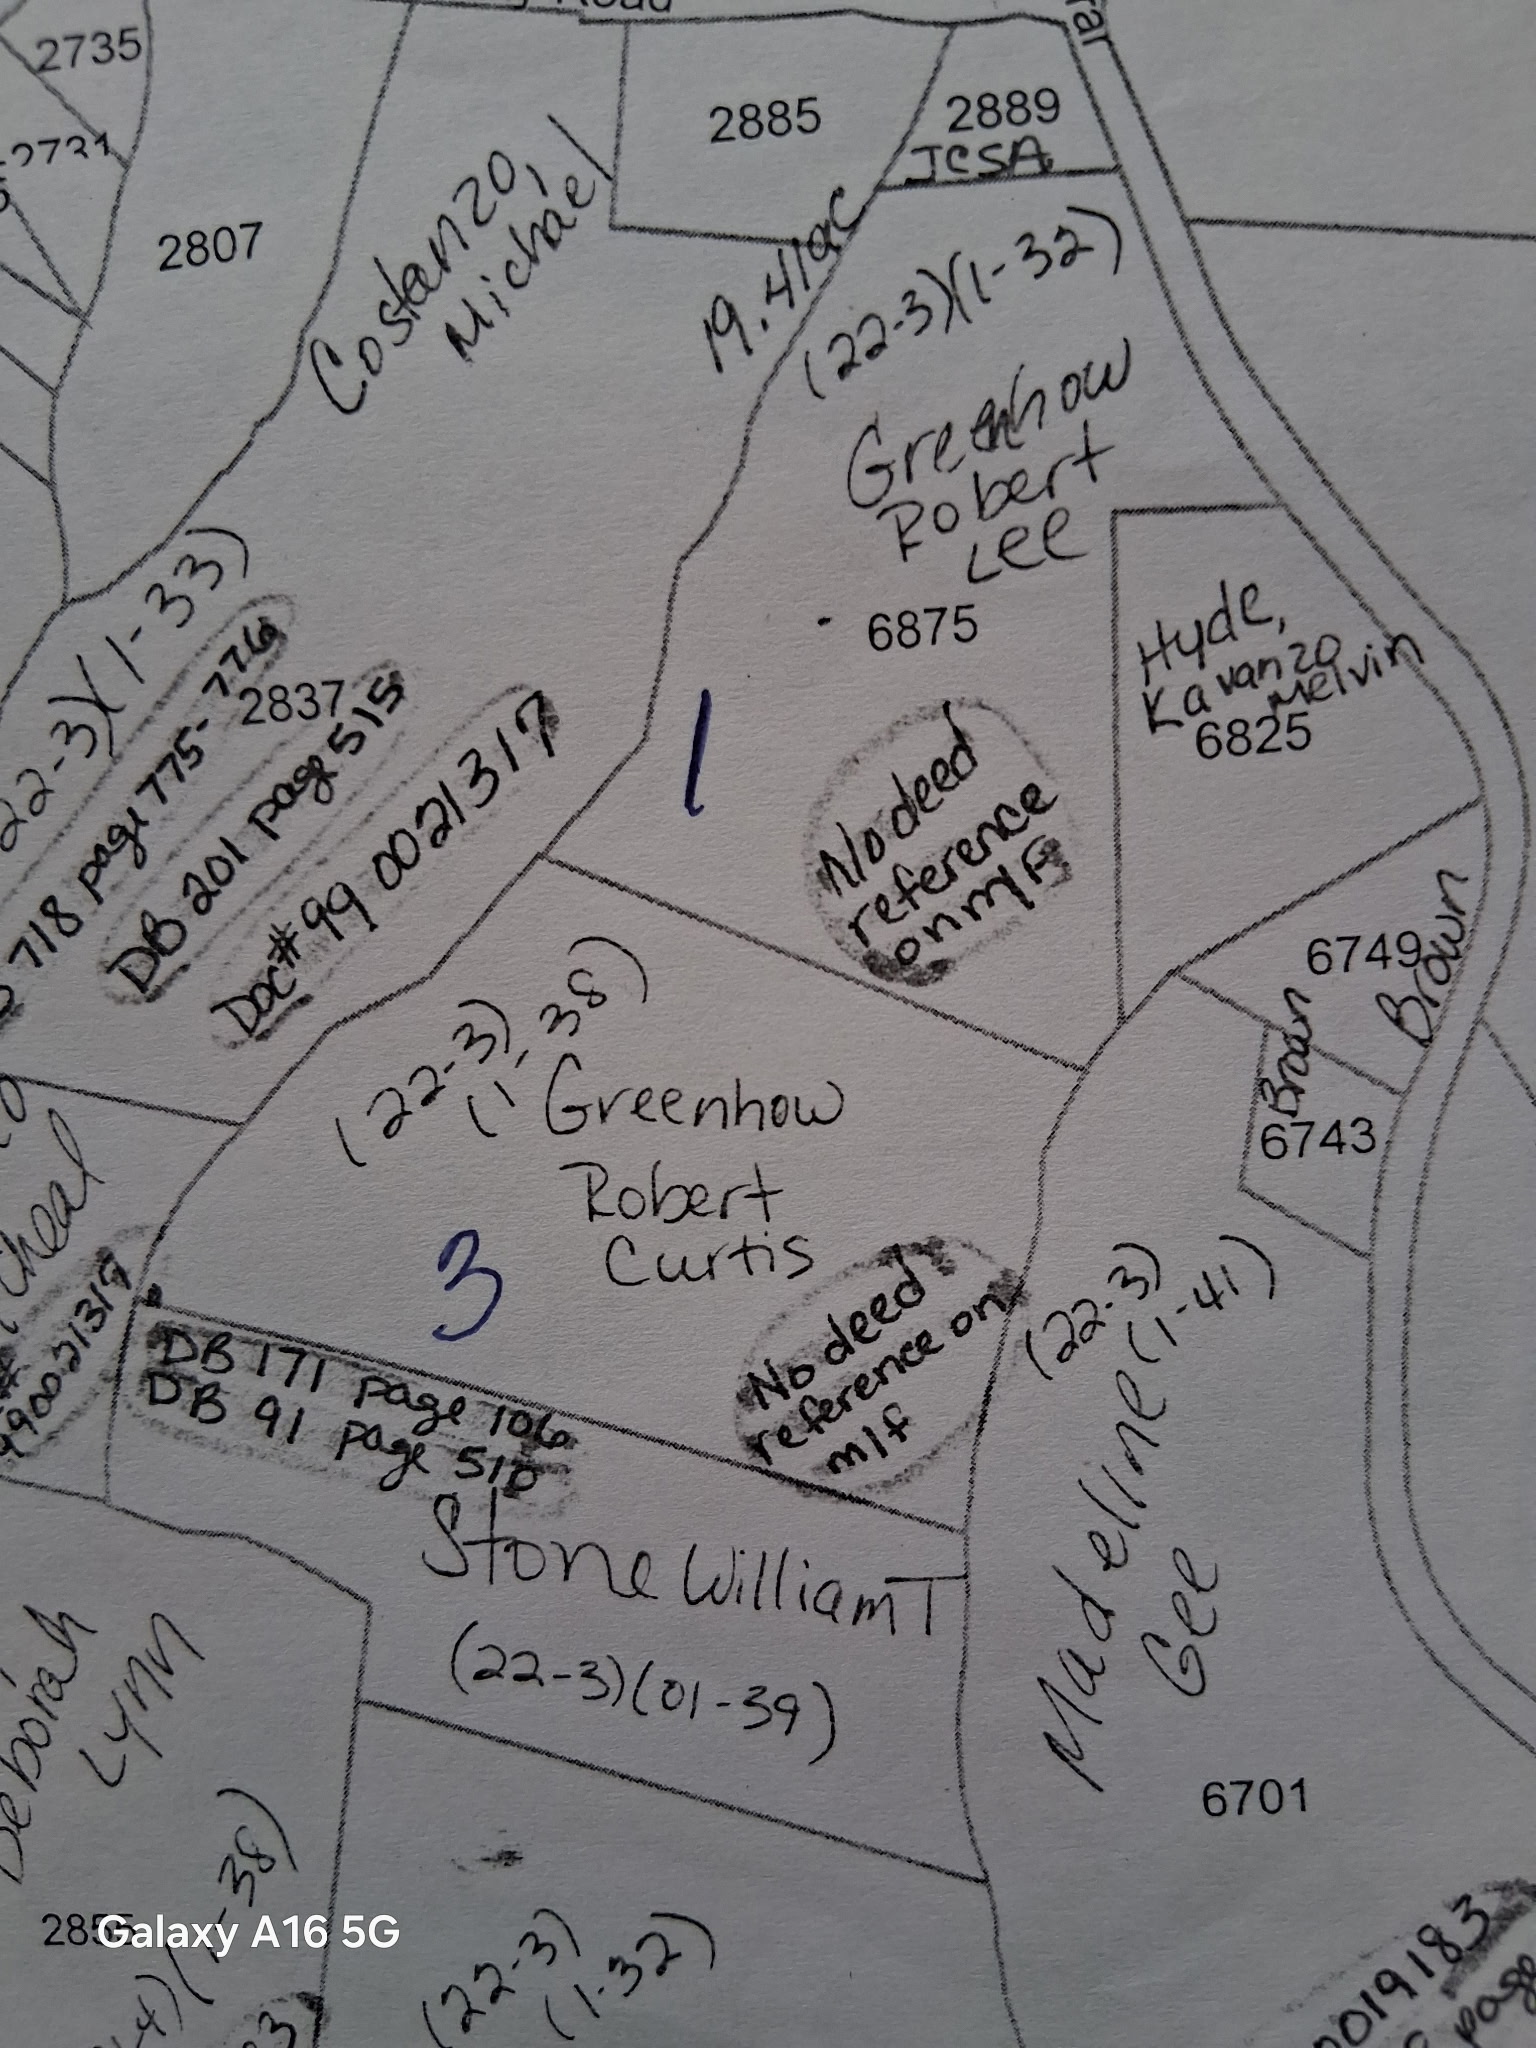 Road
2735
2731
2885
2889
JCSA
2807
Costanzo,
Michael
19.41ac
(22-3)(1-32)
Greenhow
Robert
Lee
6875
Hyde,
Kavanzo
Melvin
6825
22-3)(1-33)
718 page 775-776
2837
DB 201 page 515
Doc# 99 0021317
1
No deed
reference
on m/F
6749
Brown
Brown
6743
(22-3)
(1-38)
Greenhow
Robert
Curtis
3
No deed
reference on
m/f
990021317
DB 171 page 106
DB 91 page 510
(22-3)
(1-41)
Madeline
Gee
Stone William T
(22-3)(01-39)
6701
Deborah
Lynn
-38)
2855
Galaxy A16 5G
(22-3)
(1-32)
0019183
page